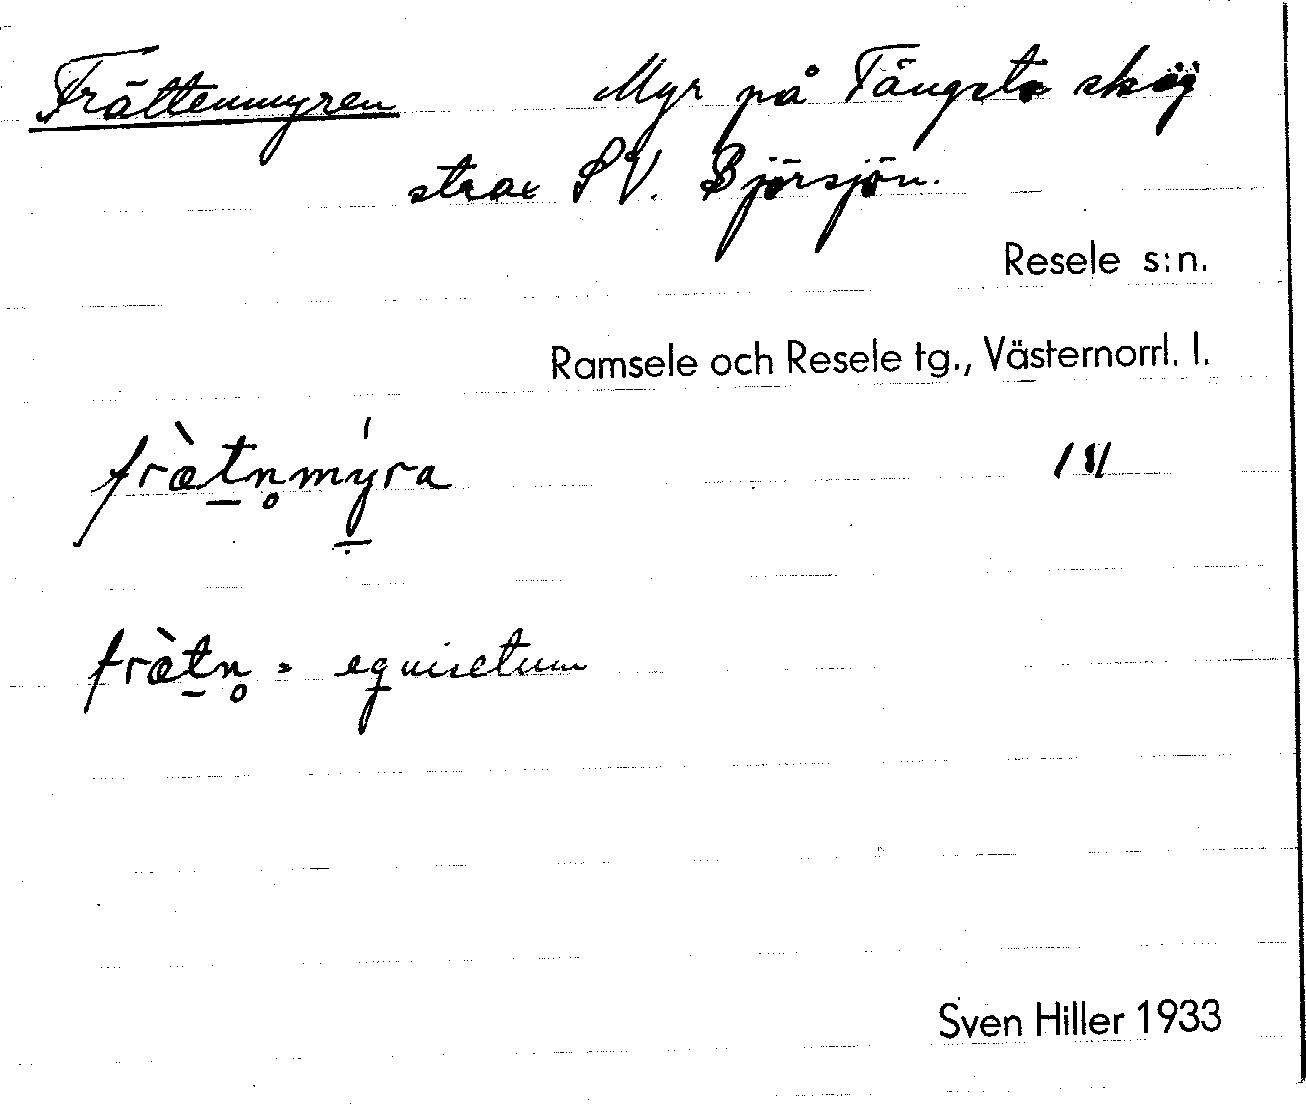 Frättenmyren Myr på Tängsta skog
strax SV. Björsjön.
Resele s:n.
Ramsele och Resele tg., Västernorrl. l.
fræ̀tn̥mýra
fræ̀tn̥ = equisetum
Sven Hiller 1933